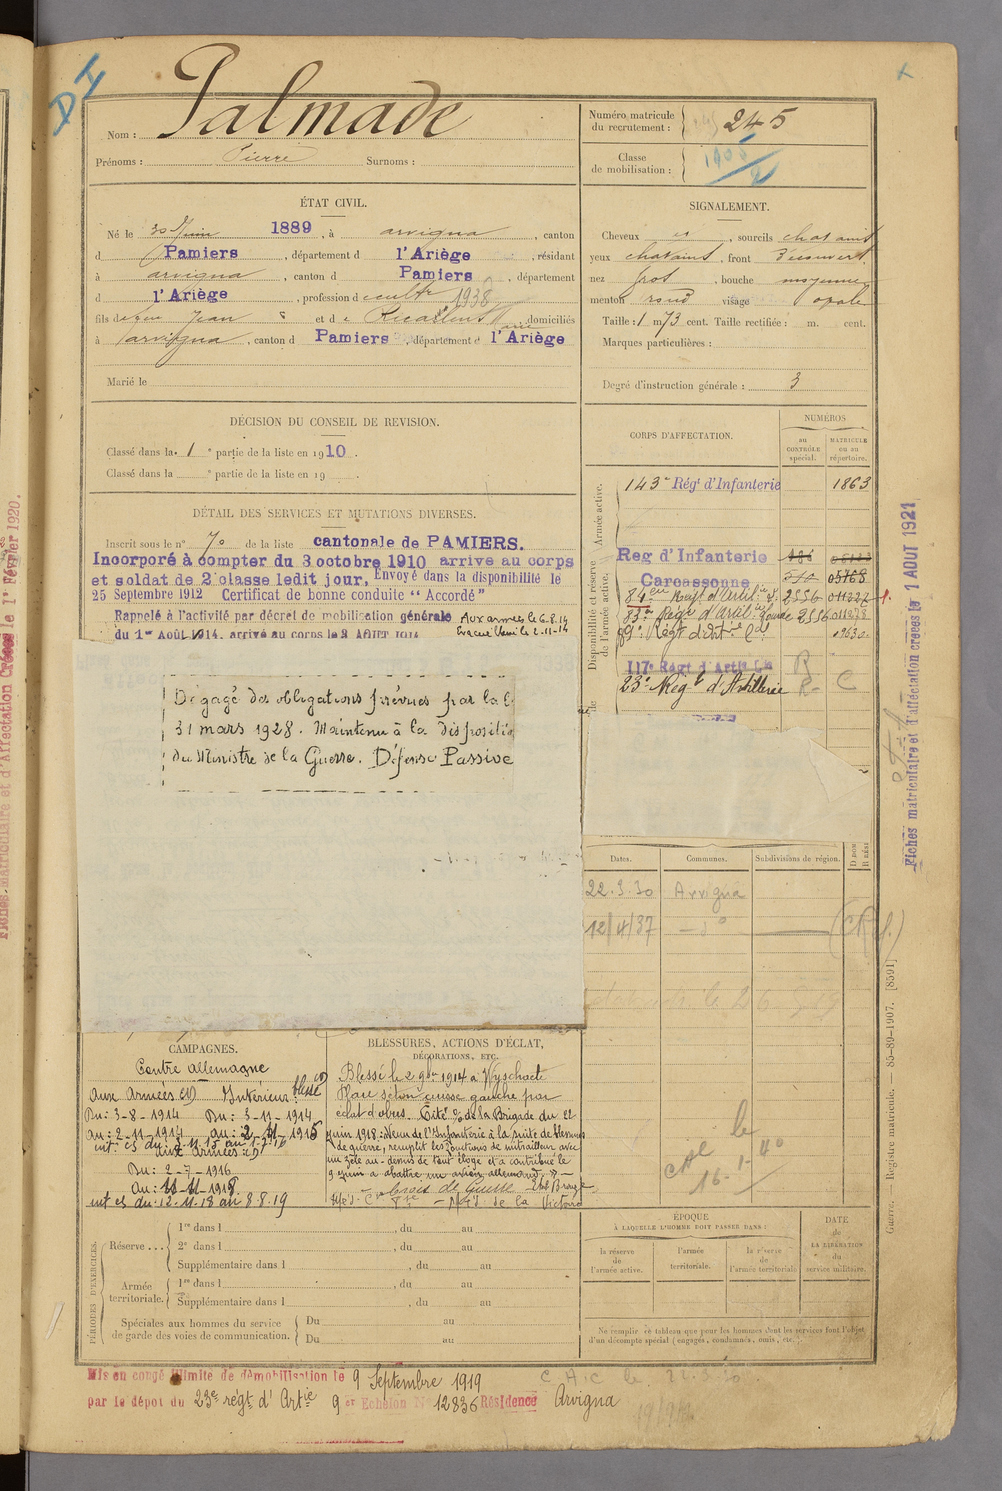 DI
Nom : Palmade
Prénoms : Pierre Surnoms :
Numéro matricule du recrutement : 245
Classe de mobilisation :
ÉTAT CIVIL.
Né le 30 Juin 1889, à arvigna, canton
d Pamiers, département d l'Ariège, résidant
à arvigna, canton d Pamiers, département
d l'Ariège, profession d cultr 1938
fils de feu Jean et de domiciliés
à arvigna, canton d Pamiers, département d l'Ariège
Marié le
SIGNALEMENT.
Cheveux et, sourcils chatains
yeux chatains, front découvert,
nez gros, bouche moyenne
menton rond visage ovale
Taille : 1 m 73 cent. Taille rectifiée : m. cent.
Marques particulières :
Degré d'instruction générale : 3
DÉCISION DU CONSEIL DE REVISION.
Classé dans la 1e partie de la liste en 1910.
Classé dans la e partie de la liste en 19
DÉTAIL DES SERVICES ET MUTATIONS DIVERSES.
Inscrit sous le n° 70 de la liste cantonale de PAMIERS.
Incorporé à compter du 3 octobre 1910 arrivé au corps
et soldat de 2e classe ledit jour. Envoyé dans la disponibilité le
25 Septembre 1912 Certificat de bonne conduite "Accordé"
Rappelé à l'activité par décret de mobilisation générale Aux armées le 6.8.14
du 1er Août 1914. arrivé au corps le 3 AOUT 1914 Evacué le 2-11-14
Dégagé des obligations prévues par la
31 mars 1928. Maintenu à la dispositio
du Ministre de la Guerre. Défense Passive
CORPS D'AFFECTATION.
NUMÉROS
au CONTRÔLE spécial.
MATRICULE ou au répertoire.
Armée active.
143e Régt d'Infanterie 1863
Disponibilité et réserve de l'armée active.
Reg d'Infanterie
Carcassonne 05768
84e Regt d'Artil 2556 011222
83e Régt d'Artil Lourde 2556 011278
117e Régt d'Artie Lde R
23e Regt d'Artillerie R- C
Dates. Communes. Subdivisions de région.
22.3.30 Arvigna
12/4/37 - do
CAMPAGNES.
Contre allemagne
Aux Armées Intérieur blessé
Du : 3-8-1914 Du : 3-11-1914
au : 2-11-1914 au : 2-11-1915
Du : 2-7-1916
Au : 11-11-1918
int cs du : 12-11-18 au 8.8.19
BLESSURES, ACTIONS D'ÉCLAT,
DÉCORATIONS, ETC.
Blessé le 2 9bre 1914 à Wyschaete
Plaie séton cuisse gauche par
éclat d'obus. Cité o/ de la Brigade du 22
juin 1918 : Venu de l'Infanterie à la suite de blessures
de guerre, remplit les fonctions de mitrailleur avec
un zèle au-dessus de tout éloge et a contribué le
9 juin à abattre un avion allemand.
Croix de Guerre Etoile Bronze
Med. de la Victoire
cAc le 16-1-40
PÉRIODES D'EXERCICES.
Réserve
1re dans l , du au
2e dans l , du au
Supplémentaire dans l , du au
Armée territoriale.
1re dans l , du au
Supplémentaire dans l , du au
Spéciales aux hommes du service de garde des voies de communication.
Du au
Du au
ÉPOQUE
À LAQUELLE L'HOMME DOIT PASSER DANS :
la réserve de l'armée active.
l'armée territoriale.
la réserve de l'armée territoriale
DATE de LA LIBÉRATION du service militaire.
Ne remplir ce tableau que pour les hommes dont les services font l'objet
d'un décompte spécial (engagés, condamnés, omis, etc.).
Mis en congé illimité de démobilisation le 9 Septembre 1919
par le dépôt du 23e régt d'Artie 9er Echelon No 12836 Résidence Arvigna
C.A.C le 22.3.30
Fiches matriculaire et d'affectation créées le 1 AOUT 1921
Guerre. — Registre matricule. — 85-89-1907. [8591]
Fiches matriculaire et d'Affectation Créées le 1er Février 1920.